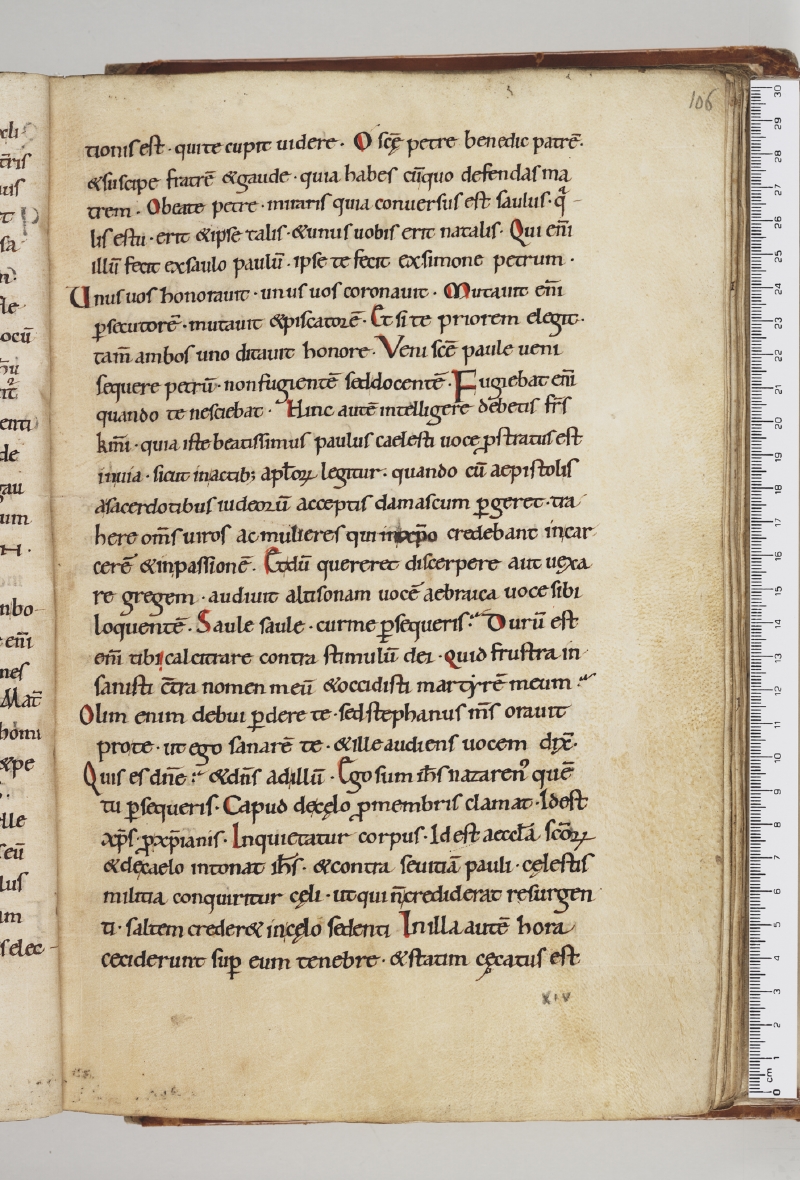 106
tionis est · qui te cupit uidere · O scę petre benedic patrē·
&suscipe fratrē &gaude · quia habes cūquo defendas ma
trem · O beate petre · miraris quia conuersus est saulus · q̄
lis es tu · erit &ipse talis · &unus uobis erit natalis · Qui eni̅
illū fecit exsaulo paulū · ipse te fecit exsimone petrum ·
Unus uos honorauit · unus uos coronauit · Mutauit eni̅
ꝑsecutorē · mutauit &piscatorē · Et si te priorem elegit ·
tam̄ ambos uno ditauit honore · Veni scē paule ueni
sequere petrū · non fugientē sed docentē · Fugiebat eni̅
quando te nesciebat · Hinc autē intelligere debetis fr̄s
km̄i · quia iste beatissimus paulus caelesti uoce ꝓstratus est
inuia · sicut in actib; apl̄oꝝ legitur · quando cū aepistolis
asacerdotibus iudeorū acceptis damascum ꝑgeret · tra
here om̄s uiros ac mulieres qui in xp̄o credebant incar
cerē &inpassionē · Et dū quereret discerpere aut uęxa
re gregem · audiuit altisonam uocē aebraica uoce sibi
loquentē · Saule saule · cur me ꝑsequeris · Durū est
em̄ tibi calcitrare contra stimulū dei · quid frustra in
sanisti c̄tra nomen meū &occidisti martyrē meum ·
Olim enim debui ꝑdere te · sed stephanus m̄s orauit
pro te · ut ego sanarē te · &ille audiens uocem dix̄ ·
Quis es dn̄e · &dn̄s ad illū · Ego sum ih̄s nazarenꝰ quē
tu ꝑsequeris · Capud de cęlo ꝓ membris clamat · Id est
xp̄s · ꝓ xp̄ianis · Inquietatur corpus · Id est aeccl̄a sc̄oꝝ
&de caelo intonat ih̄s · &contra seuitiā pauli · cęlestis
militia conquiritur cęli · ut qui n̄ crediderat resurgen
ti · saltem creder& in cęlo sedenti In illa autē hora
ceciderunt suꝑ eum tenebre · &statim cęcatus est
XIV